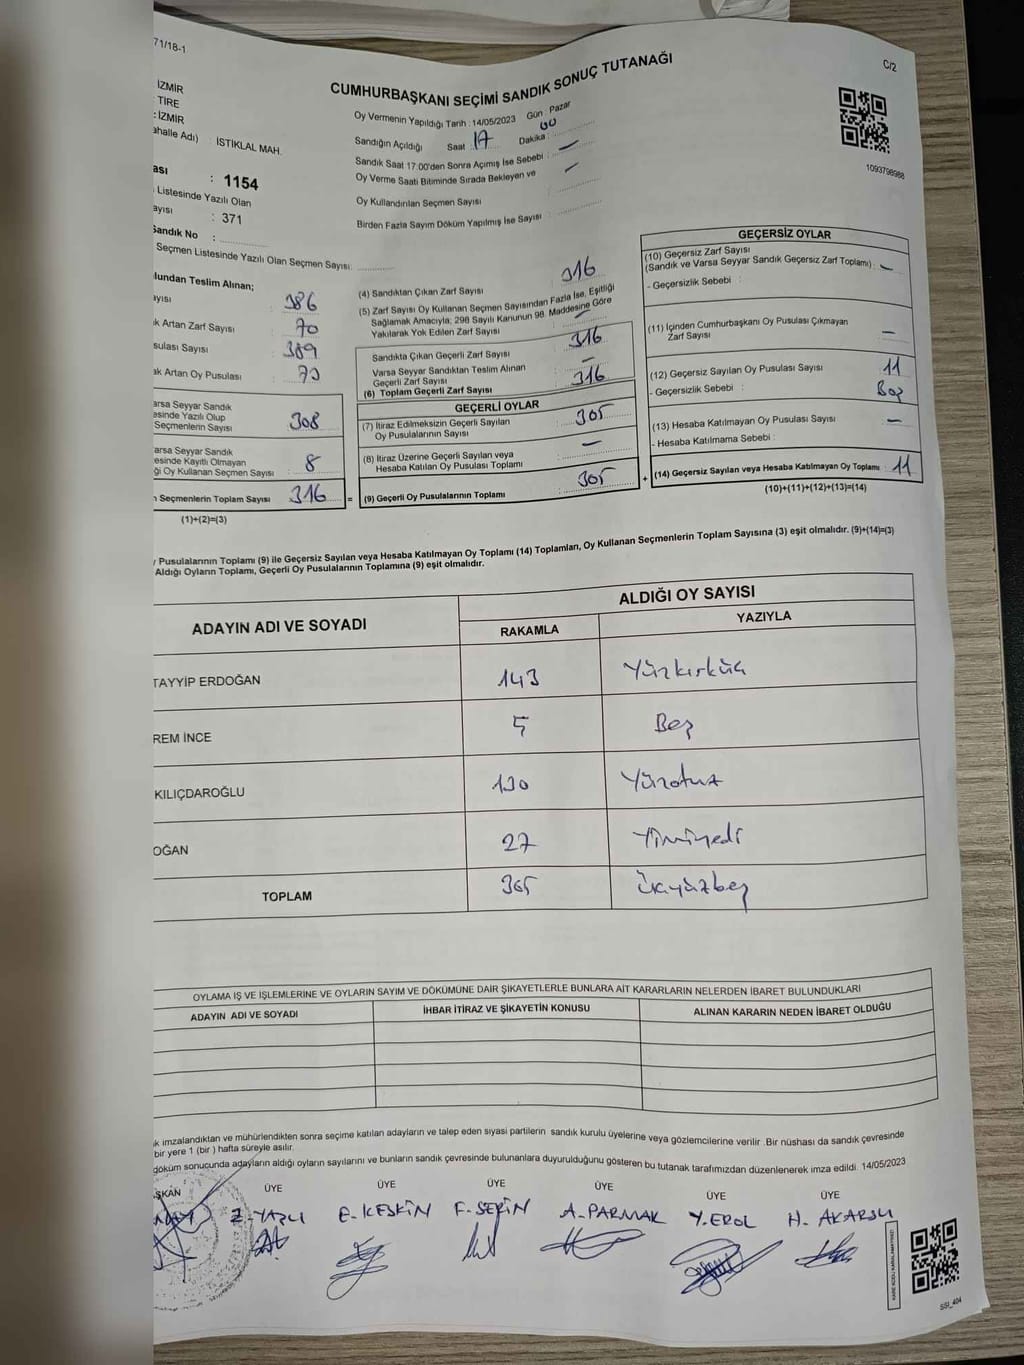 71/18-1
C/2
CUMHURBAŞKANI SEÇİMİ SANDIK SONUÇ TUTANAĞI
İZMİR
TİRE
: İZMİR
ahalle Adı) İSTİKLAL MAH.
ası : 1154
Listesinde Yazılı Olan
ayısı : 371
Sandık No :
Seçmen Listesinde Yazılı Olan Seçmen Sayısı:
Oy Vermenin Yapıldığı Tarih : 14/05/2023 Gün Pazar
Sandığın Açıldığı Saat : 17 Dakika : 00
Sandık Saat 17:00'den Sonra Açımış İse Sebebi : —
Oy Verme Saati Bitiminde Sırada Bekleyen ve —
Oy Kullandırılan Seçmen Sayısı
Birden Fazla Sayım Döküm Yapılmış İse Sayısı
1093798988
lundan Teslim Alınan;
ayısı 386
ak Artan Zarf Sayısı 70
sulası Sayısı 389
ak Artan Oy Pusulası 73
arsa Seyyar Sandık
esinde Yazılı Olup
Seçmenlerin Sayısı 308
arsa Seyyar Sandık
esinde Kayıtlı Olmayan
ği Oy Kullanan Seçmen Sayısı 8
n Seçmenlerin Toplam Sayısı 316 =
(1)+(2)=(3)
(4) Sandıktan Çıkan Zarf Sayısı 316
(5) Zarf Sayısı Oy Kullanan Seçmen Sayısından Fazla İse, Eşitliği
Sağlamak Amacıyla; 298 Sayılı Kanunun 98. Maddesine Göre
Yakılarak Yok Edilen Zarf Sayısı —
Sandıkta Çıkan Geçerli Zarf Sayısı 316
Varsa Seyyar Sandıktan Teslim Alınan
Geçerli Zarf Sayısı —
(6) Toplam Geçerli Zarf Sayısı 316
GEÇERLİ OYLAR
(7) İtiraz Edilmeksizin Geçerli Sayılan
Oy Pusulalarının Sayısı 305
(8) İtiraz Üzerine Geçerli Sayılan veya
Hesaba Katılan Oy Pusulası Toplamı —
(9) Geçerli Oy Pusulalarının Toplamı 305 +
GEÇERSİZ OYLAR
(10) Geçersiz Zarf Sayısı
(Sandık ve Varsa Seyyar Sandık Geçersiz Zarf Toplamı) : —
- Geçersizlik Sebebi :
(11) İçinden Cumhurbaşkanı Oy Pusulası Çıkmayan
Zarf Sayısı —
(12) Geçersiz Sayılan Oy Pusulası Sayısı 11
- Geçersizlik Sebebi : Boş
(13) Hesaba Katılmayan Oy Pusulası Sayısı —
- Hesaba Katılmama Sebebi :
(14) Geçersiz Sayılan veya Hesaba Katılmayan Oy Toplamı 11
(10)+(11)+(12)+(13)=(14)
y Pusulalarının Toplamı (9) ile Geçersiz Sayılan veya Hesaba Katılmayan Oy Toplamı (14) Toplamları, Oy Kullanan Seçmenlerin Toplam Sayısına (3) eşit olmalıdır. (9)+(14)=(3)
Aldığı Oyların Toplamı, Geçerli Oy Pusulalarının Toplamına (9) eşit olmalıdır.
ADAYIN ADI VE SOYADI
ALDIĞI OY SAYISI
RAKAMLA YAZIYLA
TAYYİP ERDOĞAN 143 Yüzkırküç
REM İNCE 5 Beş
KILIÇDAROĞLU 130 Yüzotuz
OĞAN 27 Yirmiyedi
TOPLAM 305 Üçyüzbeş
OYLAMA İŞ VE İŞLEMLERİNE VE OYLARIN SAYIM VE DÖKÜMÜNE DAİR ŞİKAYETLERLE BUNLARA AİT KARARLARIN NELERDEN İBARET BULUNDUKLARI
ADAYIN ADI VE SOYADI İHBAR İTİRAZ VE ŞİKAYETİN KONUSU ALINAN KARARIN NEDEN İBARET OLDUĞU
k imzalandıktan ve mühürlendikten sonra seçime katılan adayların ve talep eden siyasi partilerin sandık kurulu üyelerine veya gözlemcilerine verilir .Bir nüshası da sandık çevresinde
bir yere 1 (bir ) hafta süreyle asılır.
döküm sonucunda adayların aldığı oyların sayılarını ve bunların sandık çevresinde bulunanlara duyurulduğunu gösteren bu tutanak tarafımızdan düzenlenerek imza edildi. 14/05/2023
ŞKAN ÜYE ÜYE ÜYE ÜYE ÜYE ÜYE
Z. YAZLI E. KESKİN F. SERİN A. PARMAK Y. EROL H. AKARSU
KARE KODU KARALAMAYINIZ!
SSI_404